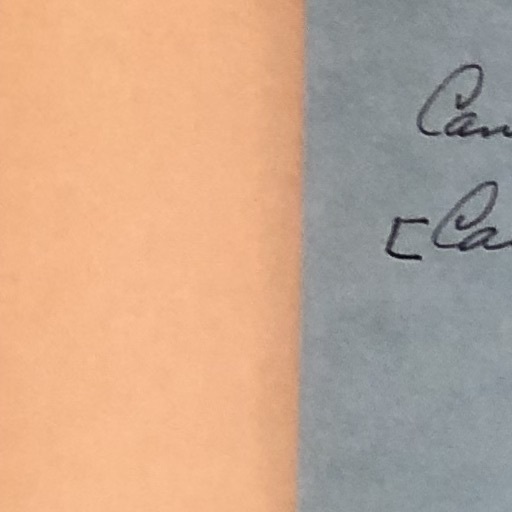 Can
[Ca